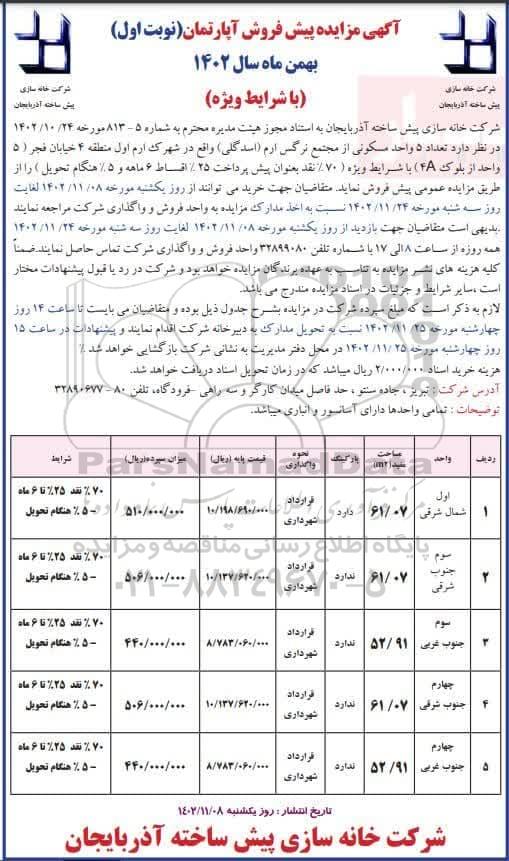 آگهی مزایده پیش فروش آپارتمان(نوبت اول)
بهمن ماه سال ۱۴۰۲
(با شرایط ویژه)
شرکت خانه سازی
پیش ساخته آذربایجان
شرکت خانه سازی
پیش ساخته آذربایجان
شرکت خانه سازی پیش ساخته آذربایجان به استناد مجوز هیئت مدیره محترم به شماره ۵ - ۸۱۳ مورخه ۲۴/ ۱۰/ ۱۴۰۲
در نظر دارد تعداد ۵ واحد مسکونی از مجتمع نرگس ارم (اسدگلی) واقع در شهرک ارم اول منطقه ۴ خیابان فجر ( ۵
واحد از بلوک ۴A ) با شرایط ویژه ( ۷۰٪ نقد بعنوان پیش پرداخت ۲۵ ٪ اقساط ۶ ماهه و ۵ ٪ هنگام تحویل ) را از
طریق مزایده عمومی پیش فروش نماید. متقاضیان جهت خرید می توانند از روز یکشنبه مورخه ۰۸/ ۱۱/ ۱۴۰۲ لغایت
روز سه شنبه مورخه ۲۴/ ۱۱/ ۱۴۰۲ نسبت به اخذ مدارک مزایده به واحد فروش و واگذاری شرکت مراجعه نمایند
.بدیهی است متقاضیان جهت بازدید از روز یکشنبه مورخه ۰۸/ ۱۱/ ۱۴۰۲ لغایت روز سه شنبه مورخه ۲۴/ ۱۱/ ۱۴۰۲
همه روزه از ساعت ۸ الی ۱۷ با شماره تلفن ۳۲۸۹۹۰۸۰ واحد فروش و واگذاری شرکت تماس حاصل نمایند.ضمناً
کلیه هزینه های نشر مزایده به تناسب به عهده برندگان مزایده خواهد بود و شرکت در رد یا قبول پیشنهادات مختار
است ،سایر شرایط و جزئیات در اسناد مزایده مندرج می باشد.
لازم به ذکر است که مبلغ سپرده شرکت در مزایده بشرح جدول ذیل بوده و متقاضیان می بایست تا ساعت ۱۴ روز
چهارشنبه مورخه ۲۵/ ۱۱/ ۱۴۰۲ نسبت به تحویل مدارک به دبیرخانه شرکت اقدام نمایند و پیشنهادات در ساعت ۱۵
روز چهارشنبه مورخه ۲۵ /۱۱/ ۱۴۰۲ در محل دفتر مدیریت به نشانی شرکت بازگشایی خواهد شد ٪
هزینه خرید اسناد ۲/۰۰۰/۰۰۰ ریال میباشد که در زمان تحویل اسناد دریافت خواهد شد.
آدرس شرکت : تبریز ، جاده سنتو ، حد فاصل میدان کارگر و سه راهی –فرودگاه، تلفن ۸۰ - ۳۲۸۹۰۶۷۷
توضیحات : تمامی واحدها دارای آسانسور و انباری میباشد.
ردیف واحد مساحت مفید(m2) پارکینگ نحوه واگذاری قیمت پایه (ریال) میزان سپرده(ریال) شرایط
۱ اول شمال شرقی ۶۱/۰۷ دارد قرارداد شهرداری ۱۰/۱۹۸/۶۹۰/۰۰۰ ۵۱۰/۰۰۰/۰۰۰ ۷۰ ٪ نقد ۲۵٪ تا ۶ ماه - ۵ ٪ هنگام تحویل
۲ سوم جنوب شرقی ۶۱/۰۷ ندارد قرارداد شهرداری ۱۰/۱۳۷/۶۲۰/۰۰۰ ۵۰۶/۰۰۰/۰۰۰ ۷۰ ٪ نقد ۲۵٪ تا ۶ ماه - ۵ ٪ هنگام تحویل
۳ سوم جنوب غربی ۵۲/۹۱ ندارد قرارداد شهرداری ۸/۷۸۳/۰۶۰/۰۰۰ ۴۴۰/۰۰۰/۰۰۰ ۷۰ ٪ نقد ۲۵٪ تا ۶ ماه - ۵ ٪ هنگام تحویل
۴ چهارم جنوب شرقی ۶۱/۰۷ ندارد قرارداد شهرداری ۱۰/۱۳۷/۶۲۰/۰۰۰ ۵۰۶/۰۰۰/۰۰۰ ۷۰ ٪ نقد ۲۵٪ تا ۶ ماه - ۵ ٪ هنگام تحویل
۵ چهارم جنوب غربی ۵۲/۹۱ ندارد قرارداد شهرداری ۸/۷۸۳/۰۶۰/۰۰۰ ۴۴۰/۰۰۰/۰۰۰ ۷۰ ٪ نقد ۲۵٪ تا ۶ ماه - ۵ ٪ هنگام تحویل
ParsNamadData
پایگاه اطلاع رسانی مناقصه و مزایده
۰۲۱-۸۸۳۴۹۶۷۰-۵
تاریخ انتشار : روز یکشنبه ۱۴۰۲/۱۱/۰۸
شرکت خانه سازی پیش ساخته آذربایجان